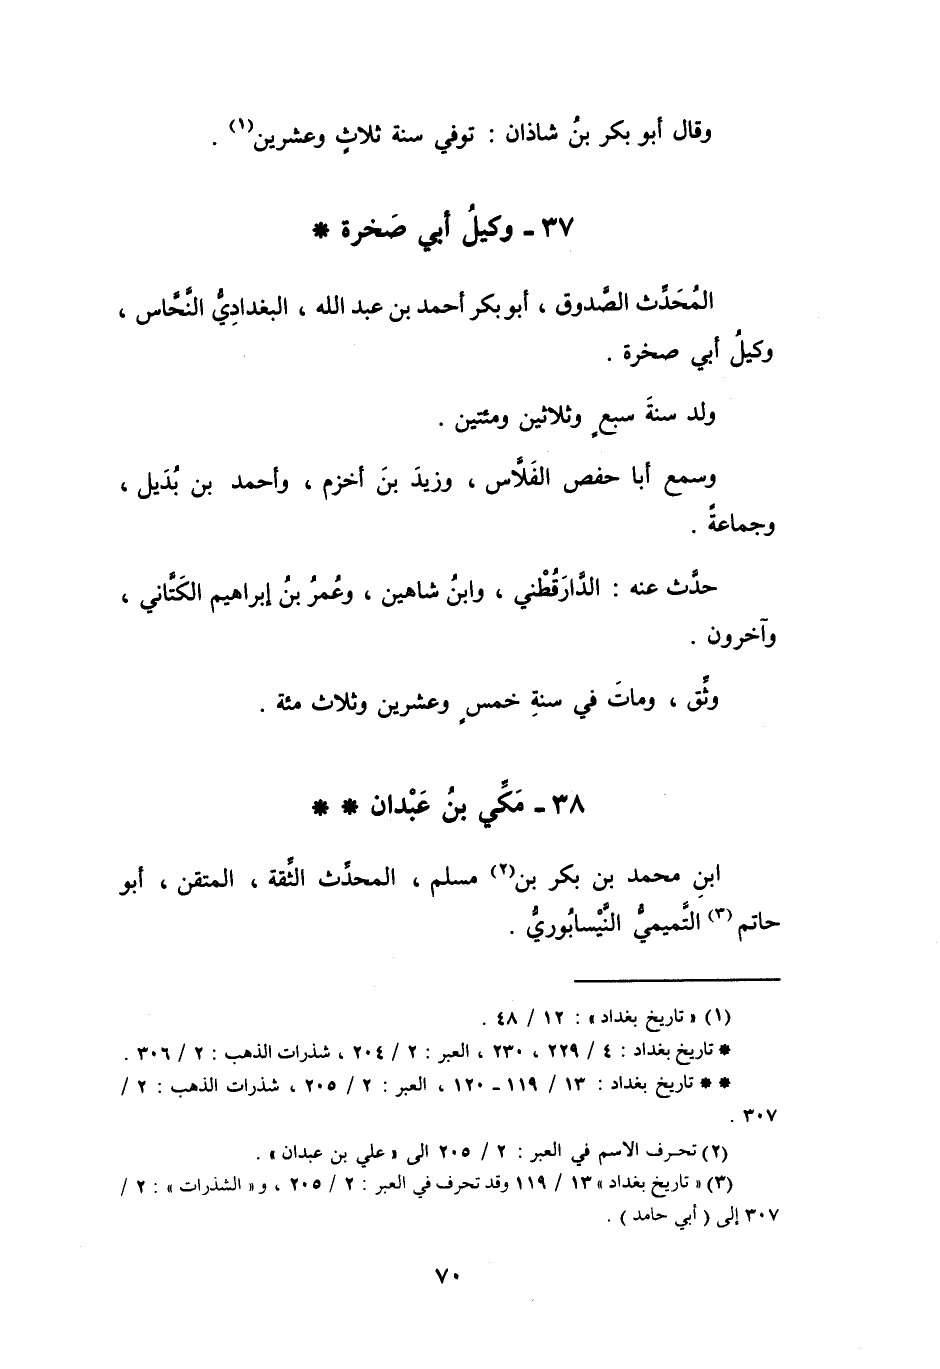 وقال أبو بكر بنُ شاذان : توفي سنة ثلاثٍ وعشرين(١) .
٣٧ ـ وكيلُ أبي صَخرة *
المُحَدِّث الصَّدوق ، أبو بكر أحمد بن عبد الله ، البغداديُّ النَّحَّاس ،
وكيلُ أبي صخرة .
ولد سنةَ سبعٍ وثلاثين ومئتين .
وسمع أبا حفص الفَلَّاس ، وزيدَ بنَ أخزم ، وأحمد بن بُدَيل ،
وجماعةً .
حدَّث عنه : الدَّارَقُطْني ، وابنُ شاهين ، وعُمرُ بنُ إبراهيم الكَتَّاني ،
وآخرون .
وثِّق ، وماتَ في سنةِ خمسٍ وعشرين وثلاث مئة .
٣٨ ـ مَكِّي بنُ عَبْدان * *
ابنِ محمد بن بكر بن(٢) مسلم ، المحدِّث الثِّقة ، المتقن ، أبو
حاتم(٣) التَّميميُّ النَّيْسابُوريُّ .
(١) « تاريخ بغداد » : ١٢ / ٤٨ .
* تاريخ بغداد : ٤ / ٢٢٩ ، ٢٣٠ ، العبر : ٢ / ٢٠٤ ، شذرات الذهب : ٢ / ٣٠٦ .
* * تاريخ بغداد : ١٣ / ١١٩ ـ ١٢٠ ، العبر : ٢ / ٢٠٥ ، شذرات الذهب : ٢ /
٣٠٧ .
(٢) تحرف الاسم في العبر : ٢ / ٢٠٥ الى « علي بن عبدان » .
(٣) « تاريخ بغداد » ١٣ / ١١٩ وقد تحرف في العبر : ٢ / ٢٠٥ ، و « الشذرات » : ٢ /
٣٠٧ إلى ( أبي حامد ) .
٧٠